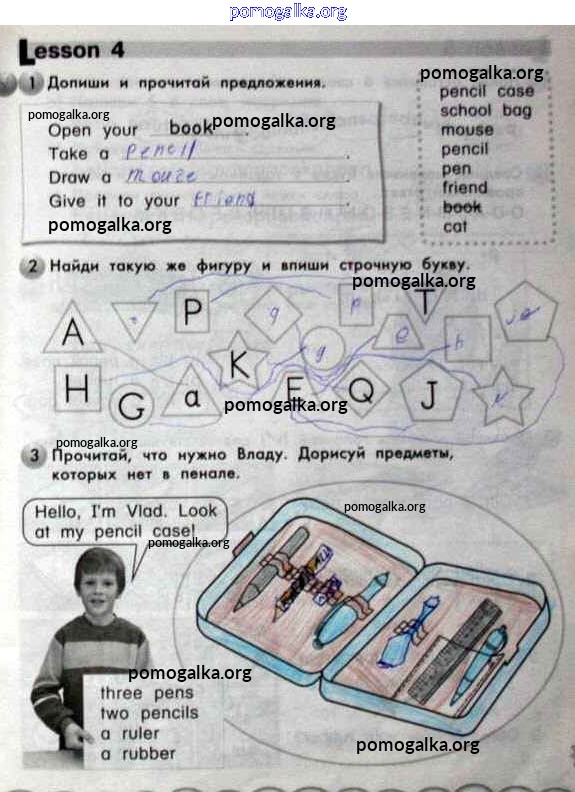 pomogalka.org
Lesson 4
1 Допиши и прочитай предложения.
pomogalka.org
pencil case
school bag
mouse
pencil
pen
friend
book
cat
pomogalka.org
pomogalka.org
Open your book.
Take a pencil.
Draw a mouse.
Give it to your friend.
pomogalka.org
2 Найди такую же фигуру и впиши строчную букву.
pomogalka.org
A P q p T
g e h
H G a K E Q J
pomogalka.org
pomogalka.org
3 Прочитай, что нужно Владу. Дорисуй предметы,
которых нет в пенале.
pomogalka.org
Hello, I'm Vlad. Look
at my pencil case!
pomogalka.org
pomogalka.org
three pens
two pencils
a ruler
a rubber
pomogalka.org